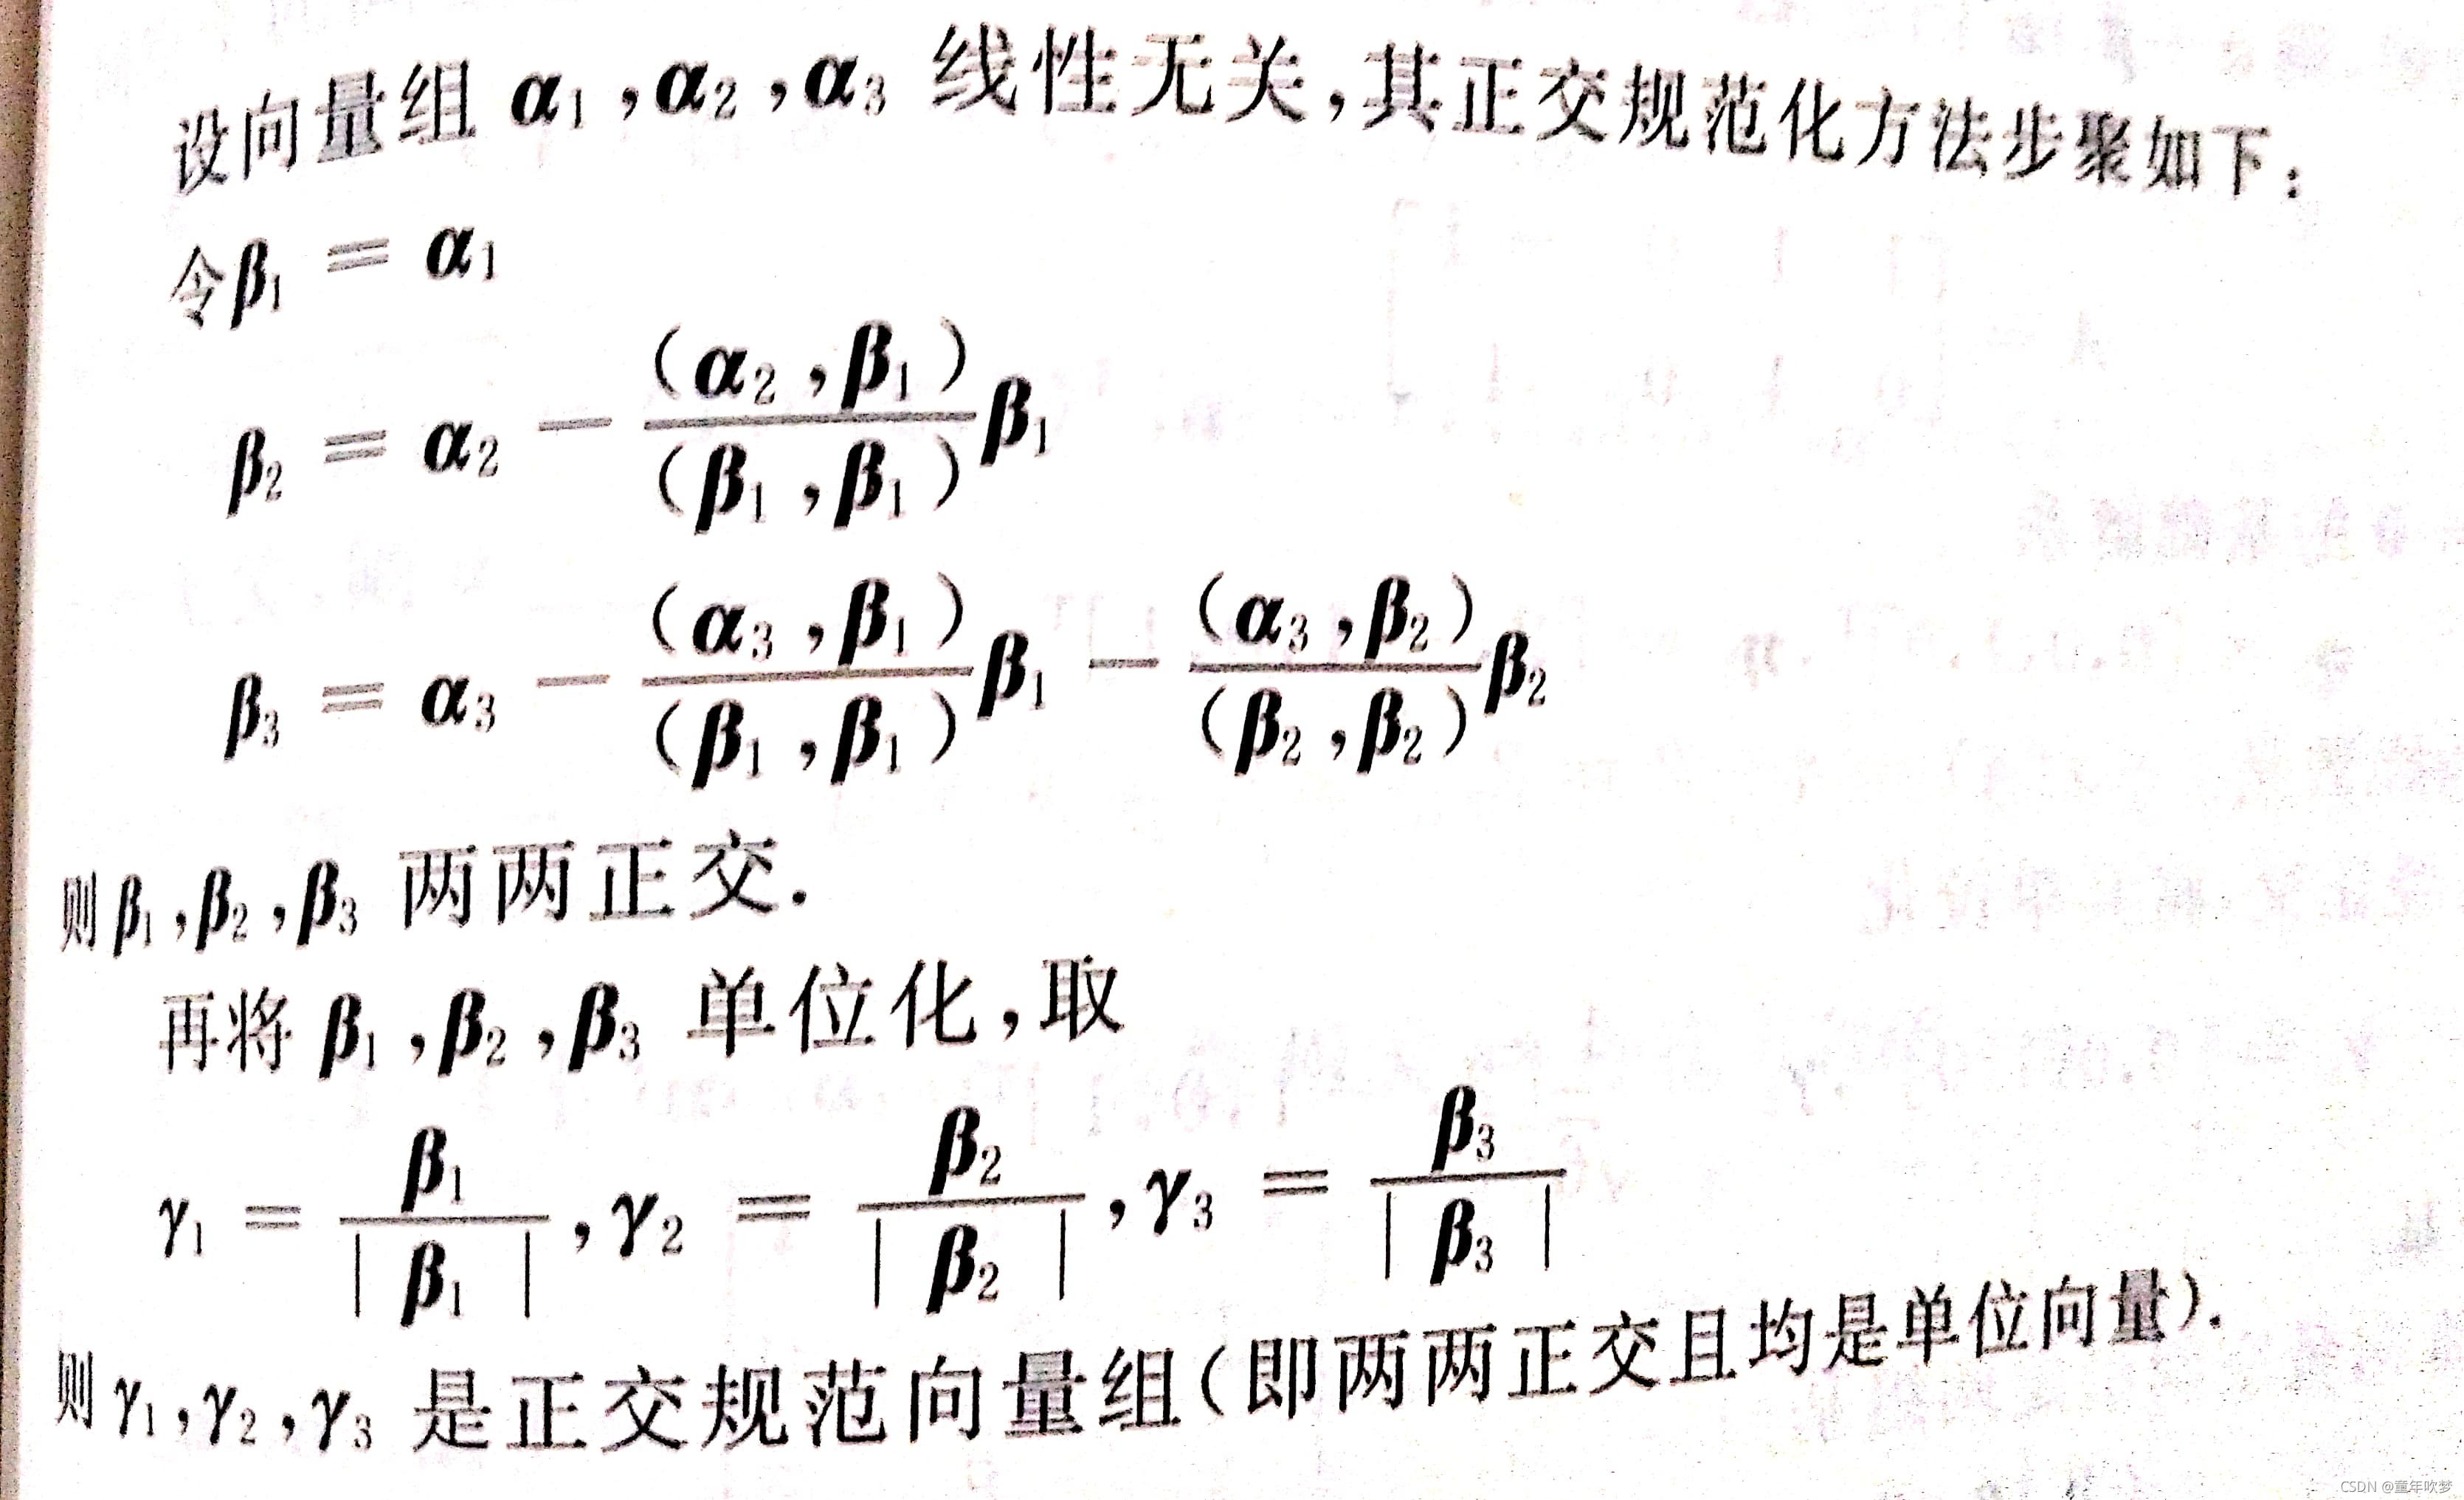 设向量组 α₁,α₂,α₃ 线性无关,其正交规范化方法步聚如下:
令β₁ = α₁
β₂ = α₂ − (α₂,β₁)/(β₁,β₁) β₁
β₃ = α₃ − (α₃,β₁)/(β₁,β₁) β₁ − (α₃,β₂)/(β₂,β₂) β₂
则β₁,β₂,β₃ 两两正交.
再将 β₁,β₂,β₃ 单位化,取
γ₁ = β₁/|β₁|,γ₂ = β₂/|β₂|,γ₃ = β₃/|β₃|
则γ₁,γ₂,γ₃ 是正交规范向量组(即两两正交且均是单位向量).
CSDN @童年吹梦